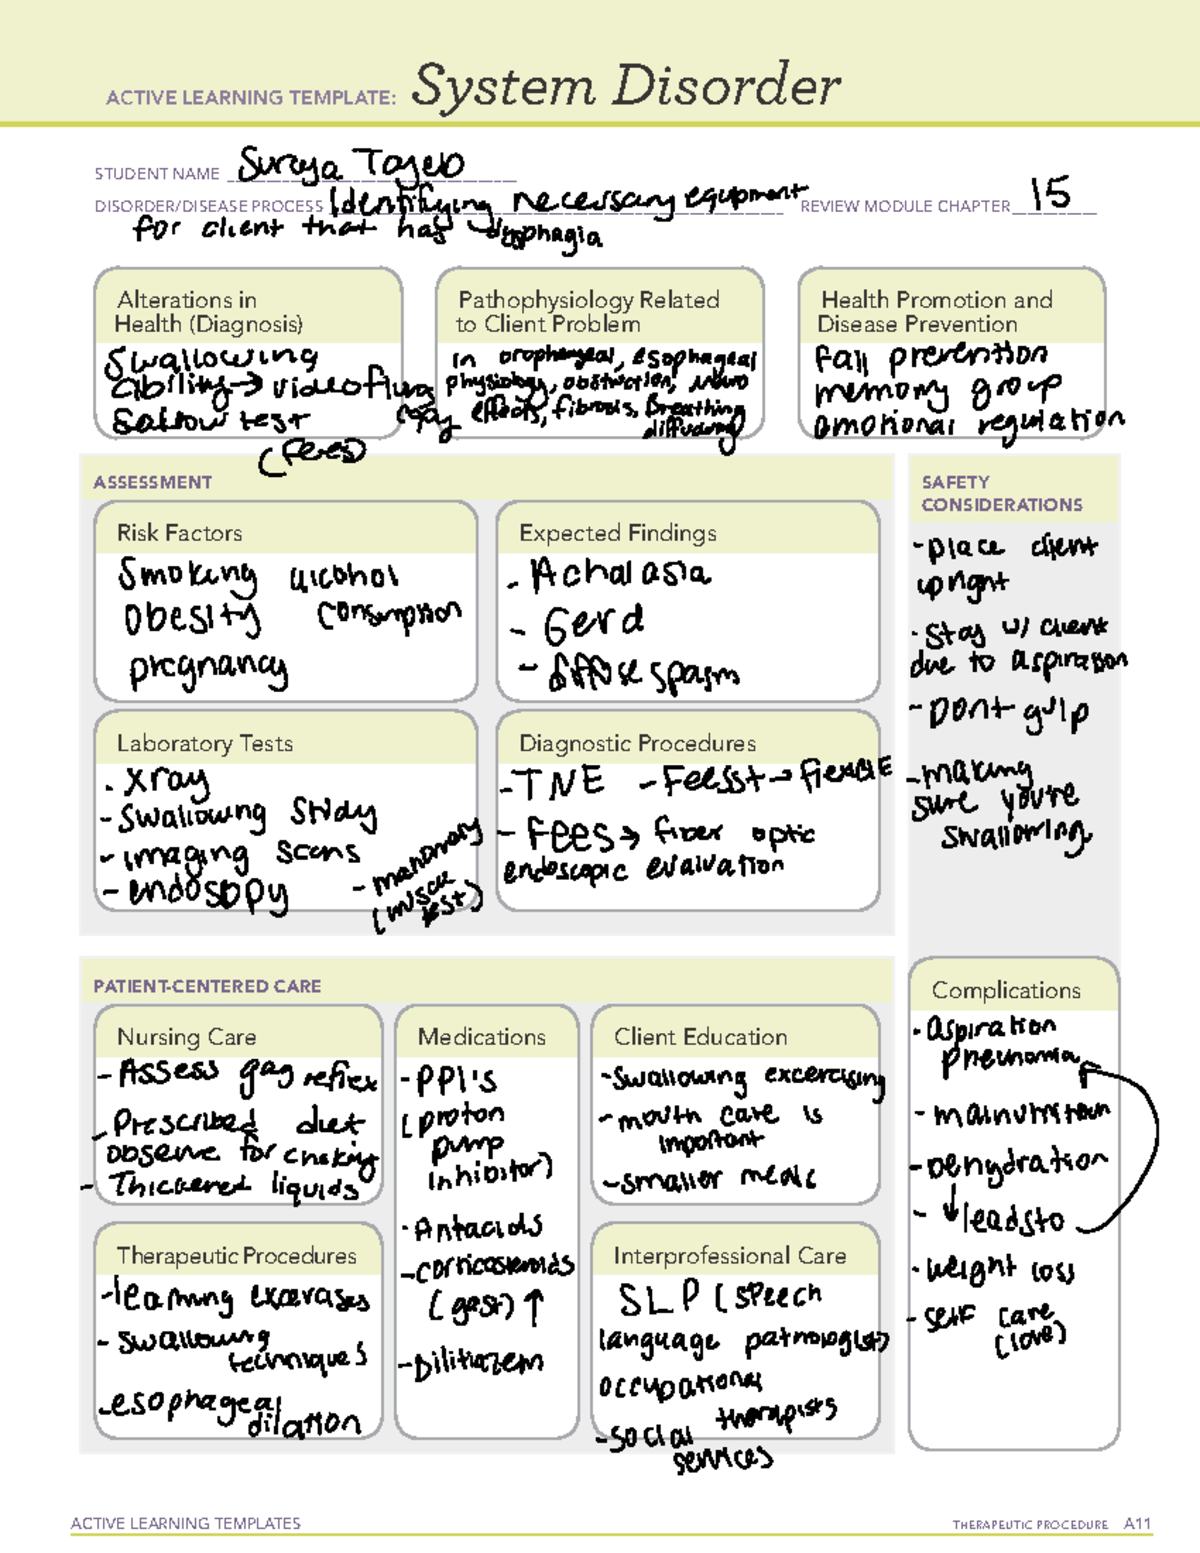 ACTIVE LEARNING TEMPLATE: System Disorder
STUDENT NAME Suraya Tayeb
DISORDER/DISEASE PROCESS Identifying necessary equipment REVIEW MODULE CHAPTER 15
for client that has dysphagia
Alterations in
Health (Diagnosis)
Swallowing
ability → videofluro
swallow test
(fees)
Pathophysiology Related
to Client Problem
in oropharyngeal, esophageal
physiology, obstruction, neuro
effects, fibrosis, Breathing
Health Promotion and
Disease Prevention
Fall prevention
memory group
emotional regulation
ASSESSMENT
Risk Factors
Smoking alcohol
Obesity consumption
pregnancy
Expected Findings
- Achalasia
- Gerd
- diffuse spasm
Laboratory Tests
- xray
- Swallowing Study
- imaging scans
- endosopy
(muscle
test)
Diagnostic Procedures
- TNE - Feesst →
- Fees → fiber optic
endoscopic evaluation
SAFETY
CONSIDERATIONS
- place client
upright
- Stay w/ client
due to aspiration
- Dont gulp
- making
sure you're
swallowing
PATIENT-CENTERED CARE
Nursing Care
- Assess gag reflex
- Prescribed diet
observe for choking
- Thickened liquids
Medications
- PPI's
(proton
pump
inhibitor)
- Antacids
- corticosteroids
↑
- Diltiazem
Client Education
- Swallowing excercising
- mouth care is
important
- smaller meals
Therapeutic Procedures
- learning exercises
- swallowing
techniques
- esophageal
dilation
Interprofessional Care
SLP (speech
language pathologist)
occupational
therapists
- social
services
Complications
- aspiration
pneumonia
- malnutrition
- Dehydration
- ↓ leads to
- weight loss
- self care
(love)
ACTIVE LEARNING TEMPLATES
THERAPEUTIC PROCEDURE A11